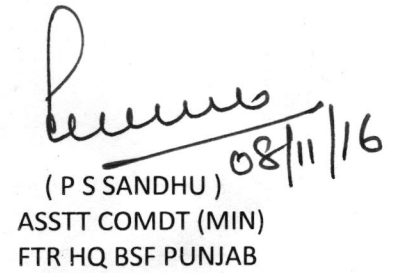 08/11/16
( P S SANDHU )
ASSTT COMDT (MIN)
FTR HQ BSF PUNJAB